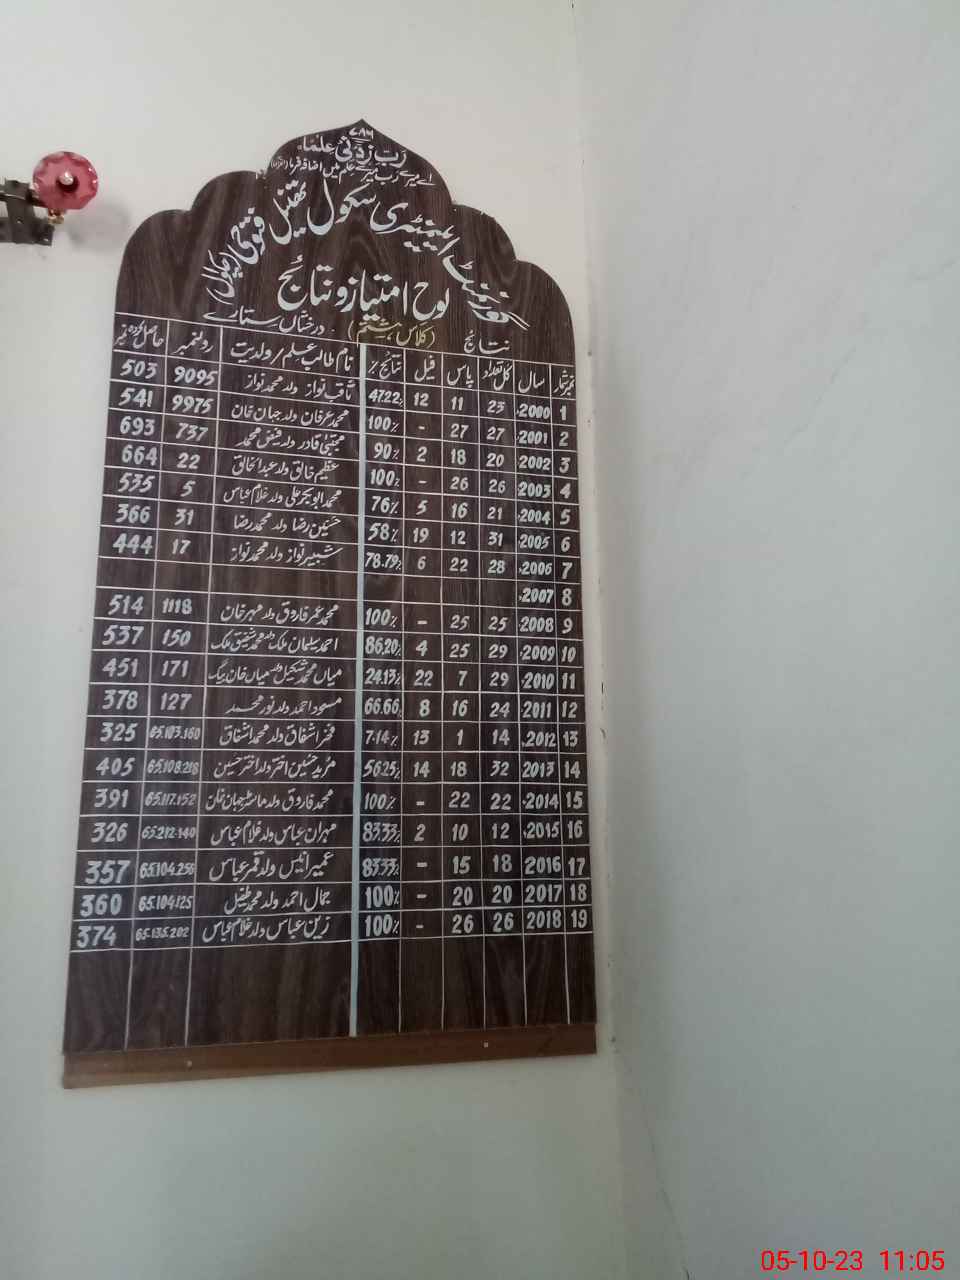 ۷۸۶
رَبِّ زِدْنِی عِلْمًا
اے میرے رب میرے علم میں اضافہ فرما
گورنمنٹ ایلیمنٹری سکول بھتیل فتوحی
لوح امتیاز و نتائج
نتائج (کلاس ہشتم) درخشاں ستارے
نمبر شمار سال کل تعداد پاس فیل نتائج٪ نام طالب علم / ولدیت رولنمبر حاصل کردہ نمبر
1 2000ء 23 11 12 47.22٪ ثاقب نواز ولد محمد نواز 9095 503
2 2001ء 27 27 - 100٪ محمد عرفان ولد جہان خان 9975 541
3 2002ء 20 18 2 90٪ مجتبیٰ قادر ولد فیض محمد 737 693
4 2003ء 26 26 - 100٪ عظیم خالق ولد عبدالخالق 22 664
5 2004ء 21 16 5 76٪ محمد ابوبکر علی ولد غلام عباس 5 535
6 2005ء 31 12 19 58٪ حسنین رضا ولد محمد رضا 31 366
7 2006ء 28 22 6 78.79٪ شبیر نواز ولد محمد نواز 17 444
8 2007ء
9 2008ء 25 25 - 100٪ محمد عمر فاروق ولد مہر خان 1118 514
10 2009ء 29 25 4 86.20٪ احمد سلیمان ملک ولد محمد شفیق ملک 150 537
11 2010ء 29 7 22 24.13٪ میاں محمد شکیل ولد میاں خان بیگ 171 451
12 2011ء 24 16 8 66.66٪ مسعود احمد ولد نور محمد 127 378
13 2012ء 14 1 13 7.14٪ فخر اشفاق ولد محمد اشفاق 65.103.160 325
14 2013 32 18 14 56.25٪ مرید حسنین اختر ولد اختر حسین 65.108.218 405
15 2014ء 22 22 - 100٪ محمد فاروق ولد ماسٹر جہان خان 65.117.152 391
16 2015ء 12 10 2 83.33٪ مہران عباس ولد غلام عباس 65.212.140 326
17 2016 18 15 - 83.33٪ عمیر انیس ولد قمر عباس 65.104.256 357
18 2017 20 20 - 100٪ جمال احمد ولد محمد طفیل 65.104.125 360
19 2018 26 26 - 100٪ زین عباس ولد غلام عباس 65.135.202 374
05-10-23 11:05